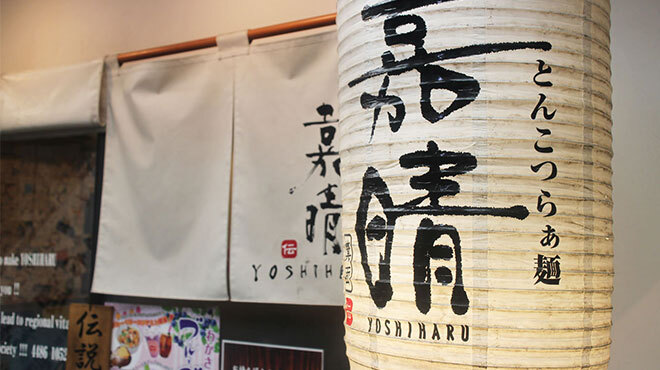 嘉晴
伝
YOSHIHA
to make YOSHIHARU
you !!
lead to regional vita
ciety !!! 4486 1052
伝説
嘉晴
とんこつらぁ麺
YOSHIHARU